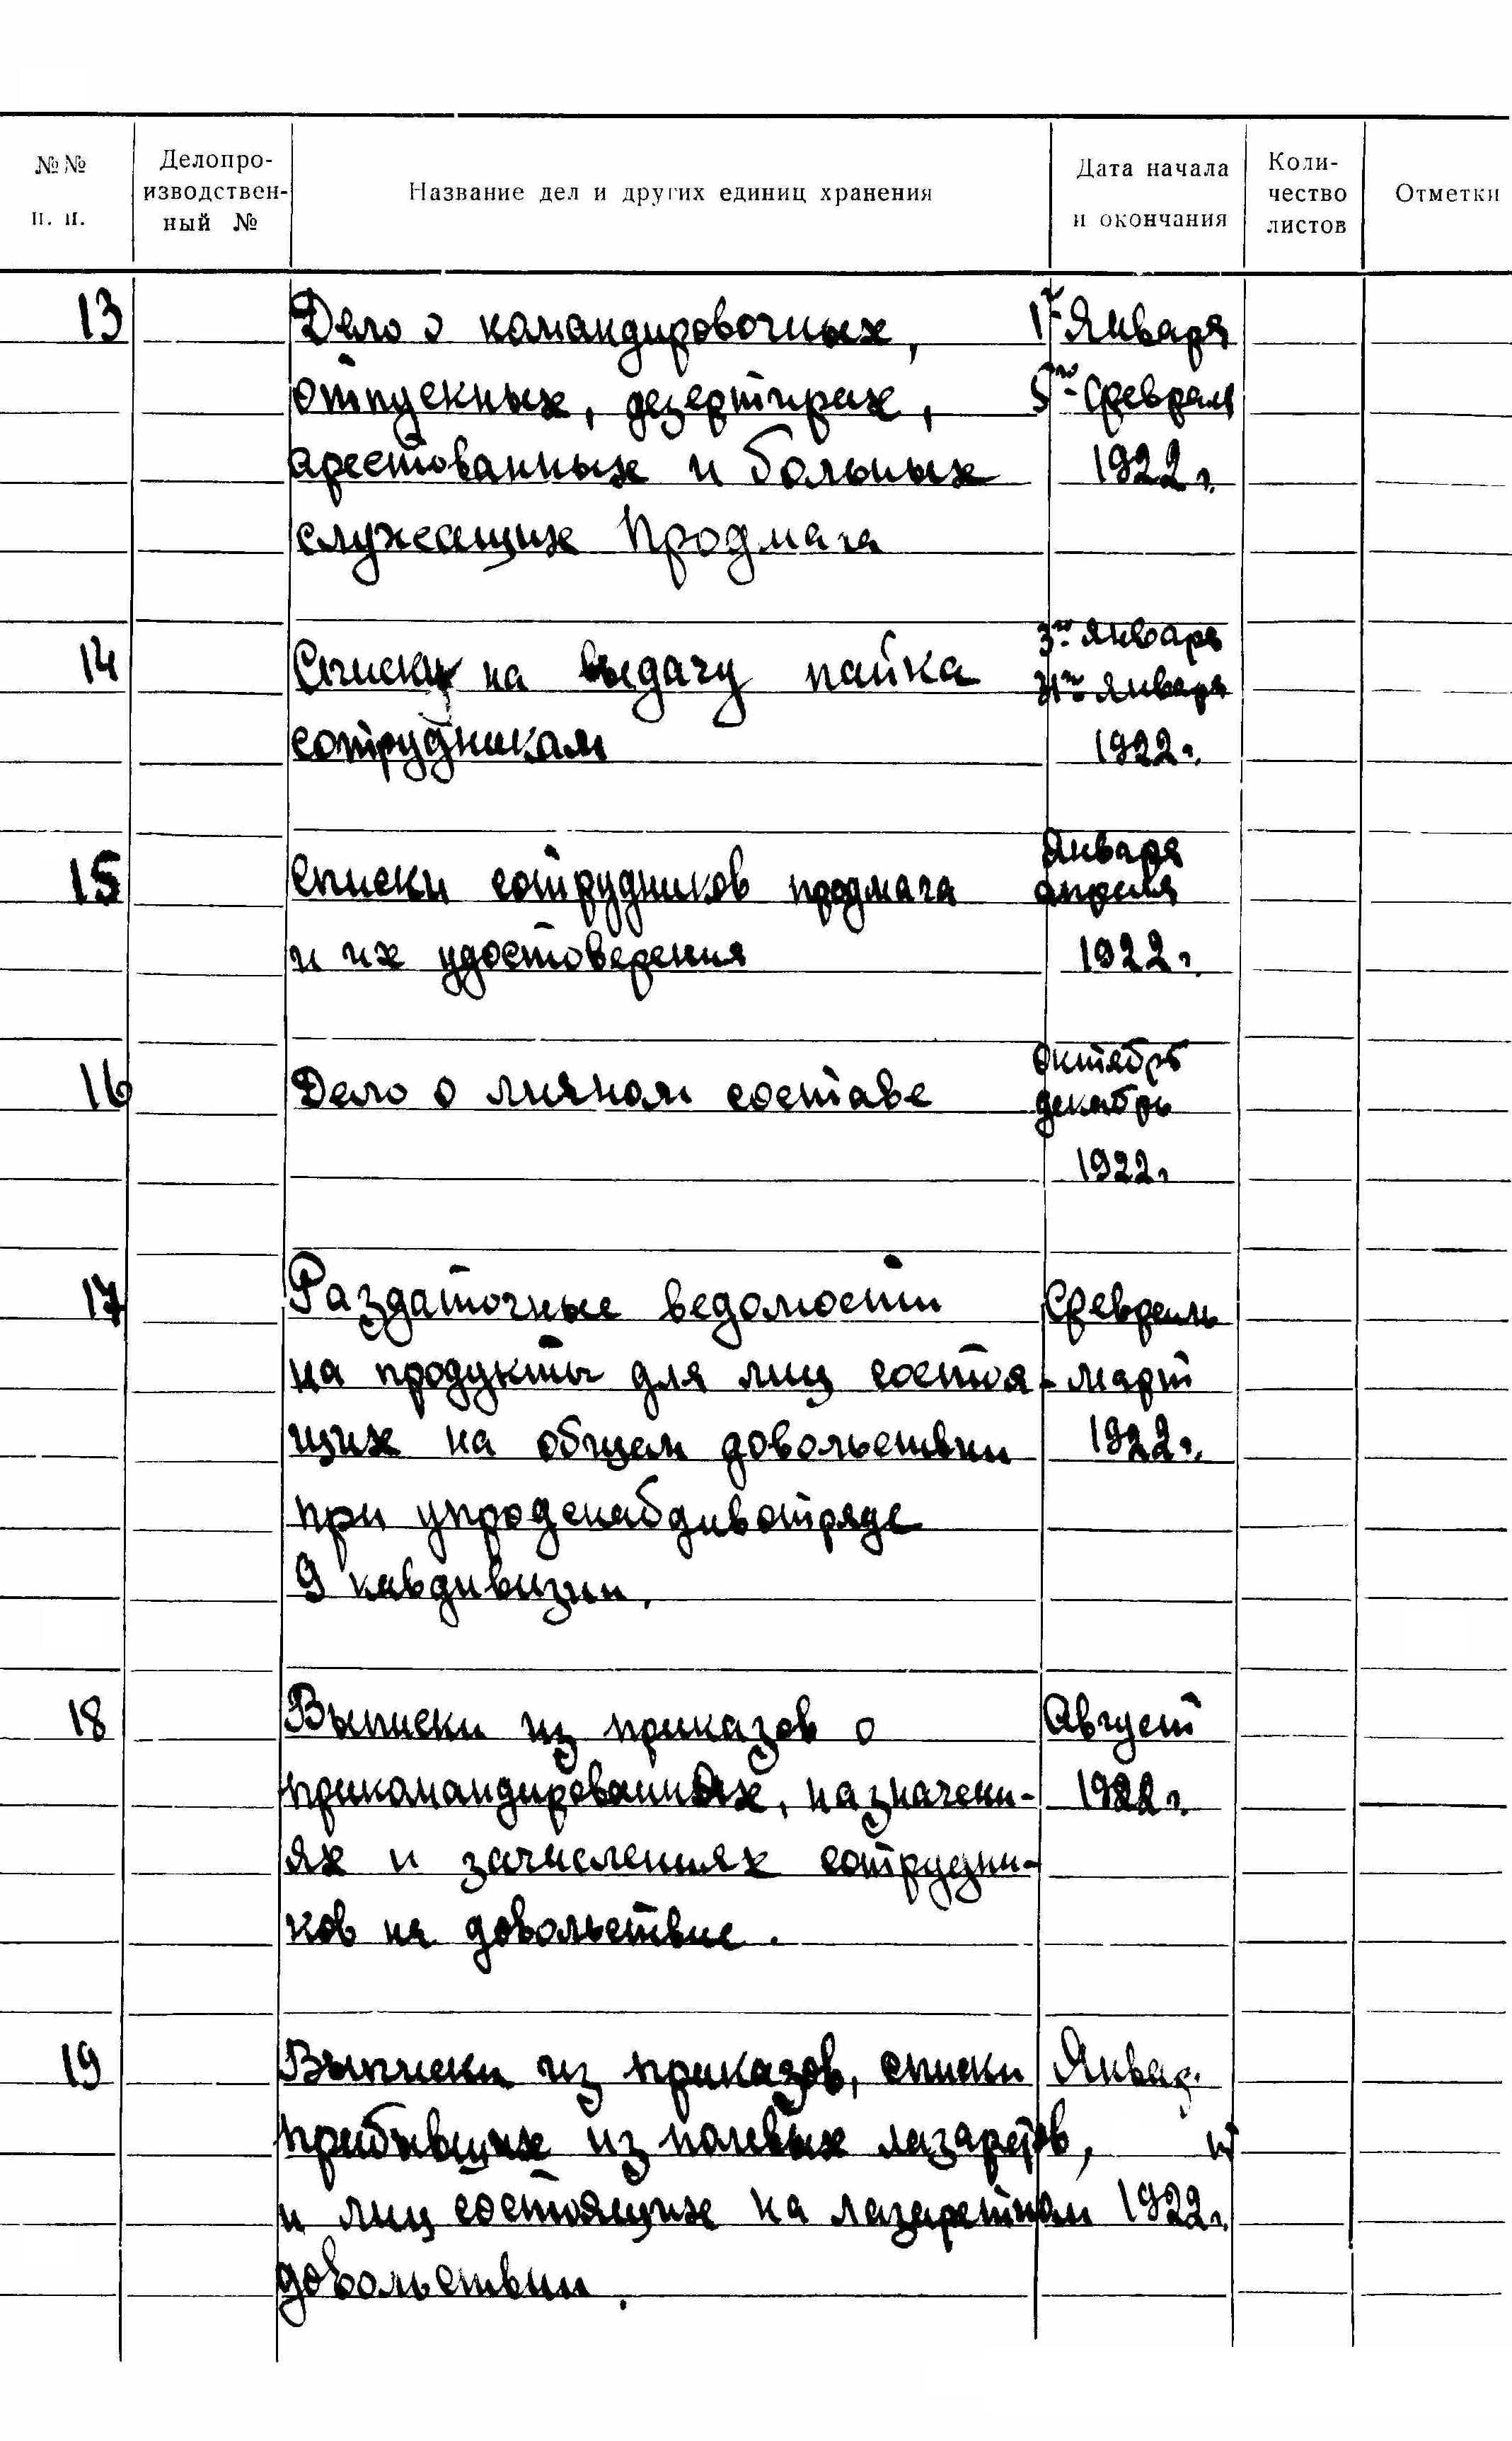 №№ п. п.
Делопро-
изводствен-
ный №
Название дел и других единиц хранения
Дата начала
и окончания
Коли-
чество
листов
Отметки
13 Дело о командировочных, 1го Января
отпускных, дезертирах, 5го февраля
арестованных и больных 1922 г.
служащих Продмага
3го января
14 Списки на выдачу пайка 31го января
сотрудникам 1922 г.
января
15 Списки сотрудников продмага апреля
и их удостоверения 1922 г.
октябрь
16 Дело о личном составе декабрь
1922 г.
17 Раздаточные ведомости Февраль
на продукты для лиц состоя- март
щих на общем довольствии 1922 г.
при упродснабдивотряде
9 кавдивизии.
18 Выписки из приказов о Август
прикомандированных, назначени- 1922 г.
ях и зачислениях сотрудни-
ков на довольствие.
19 Выписки из приказов, списки Январ.
прибывших из полевых лазаретов,
и лиц состоящих на лазаретном 1922 г.
довольствии.